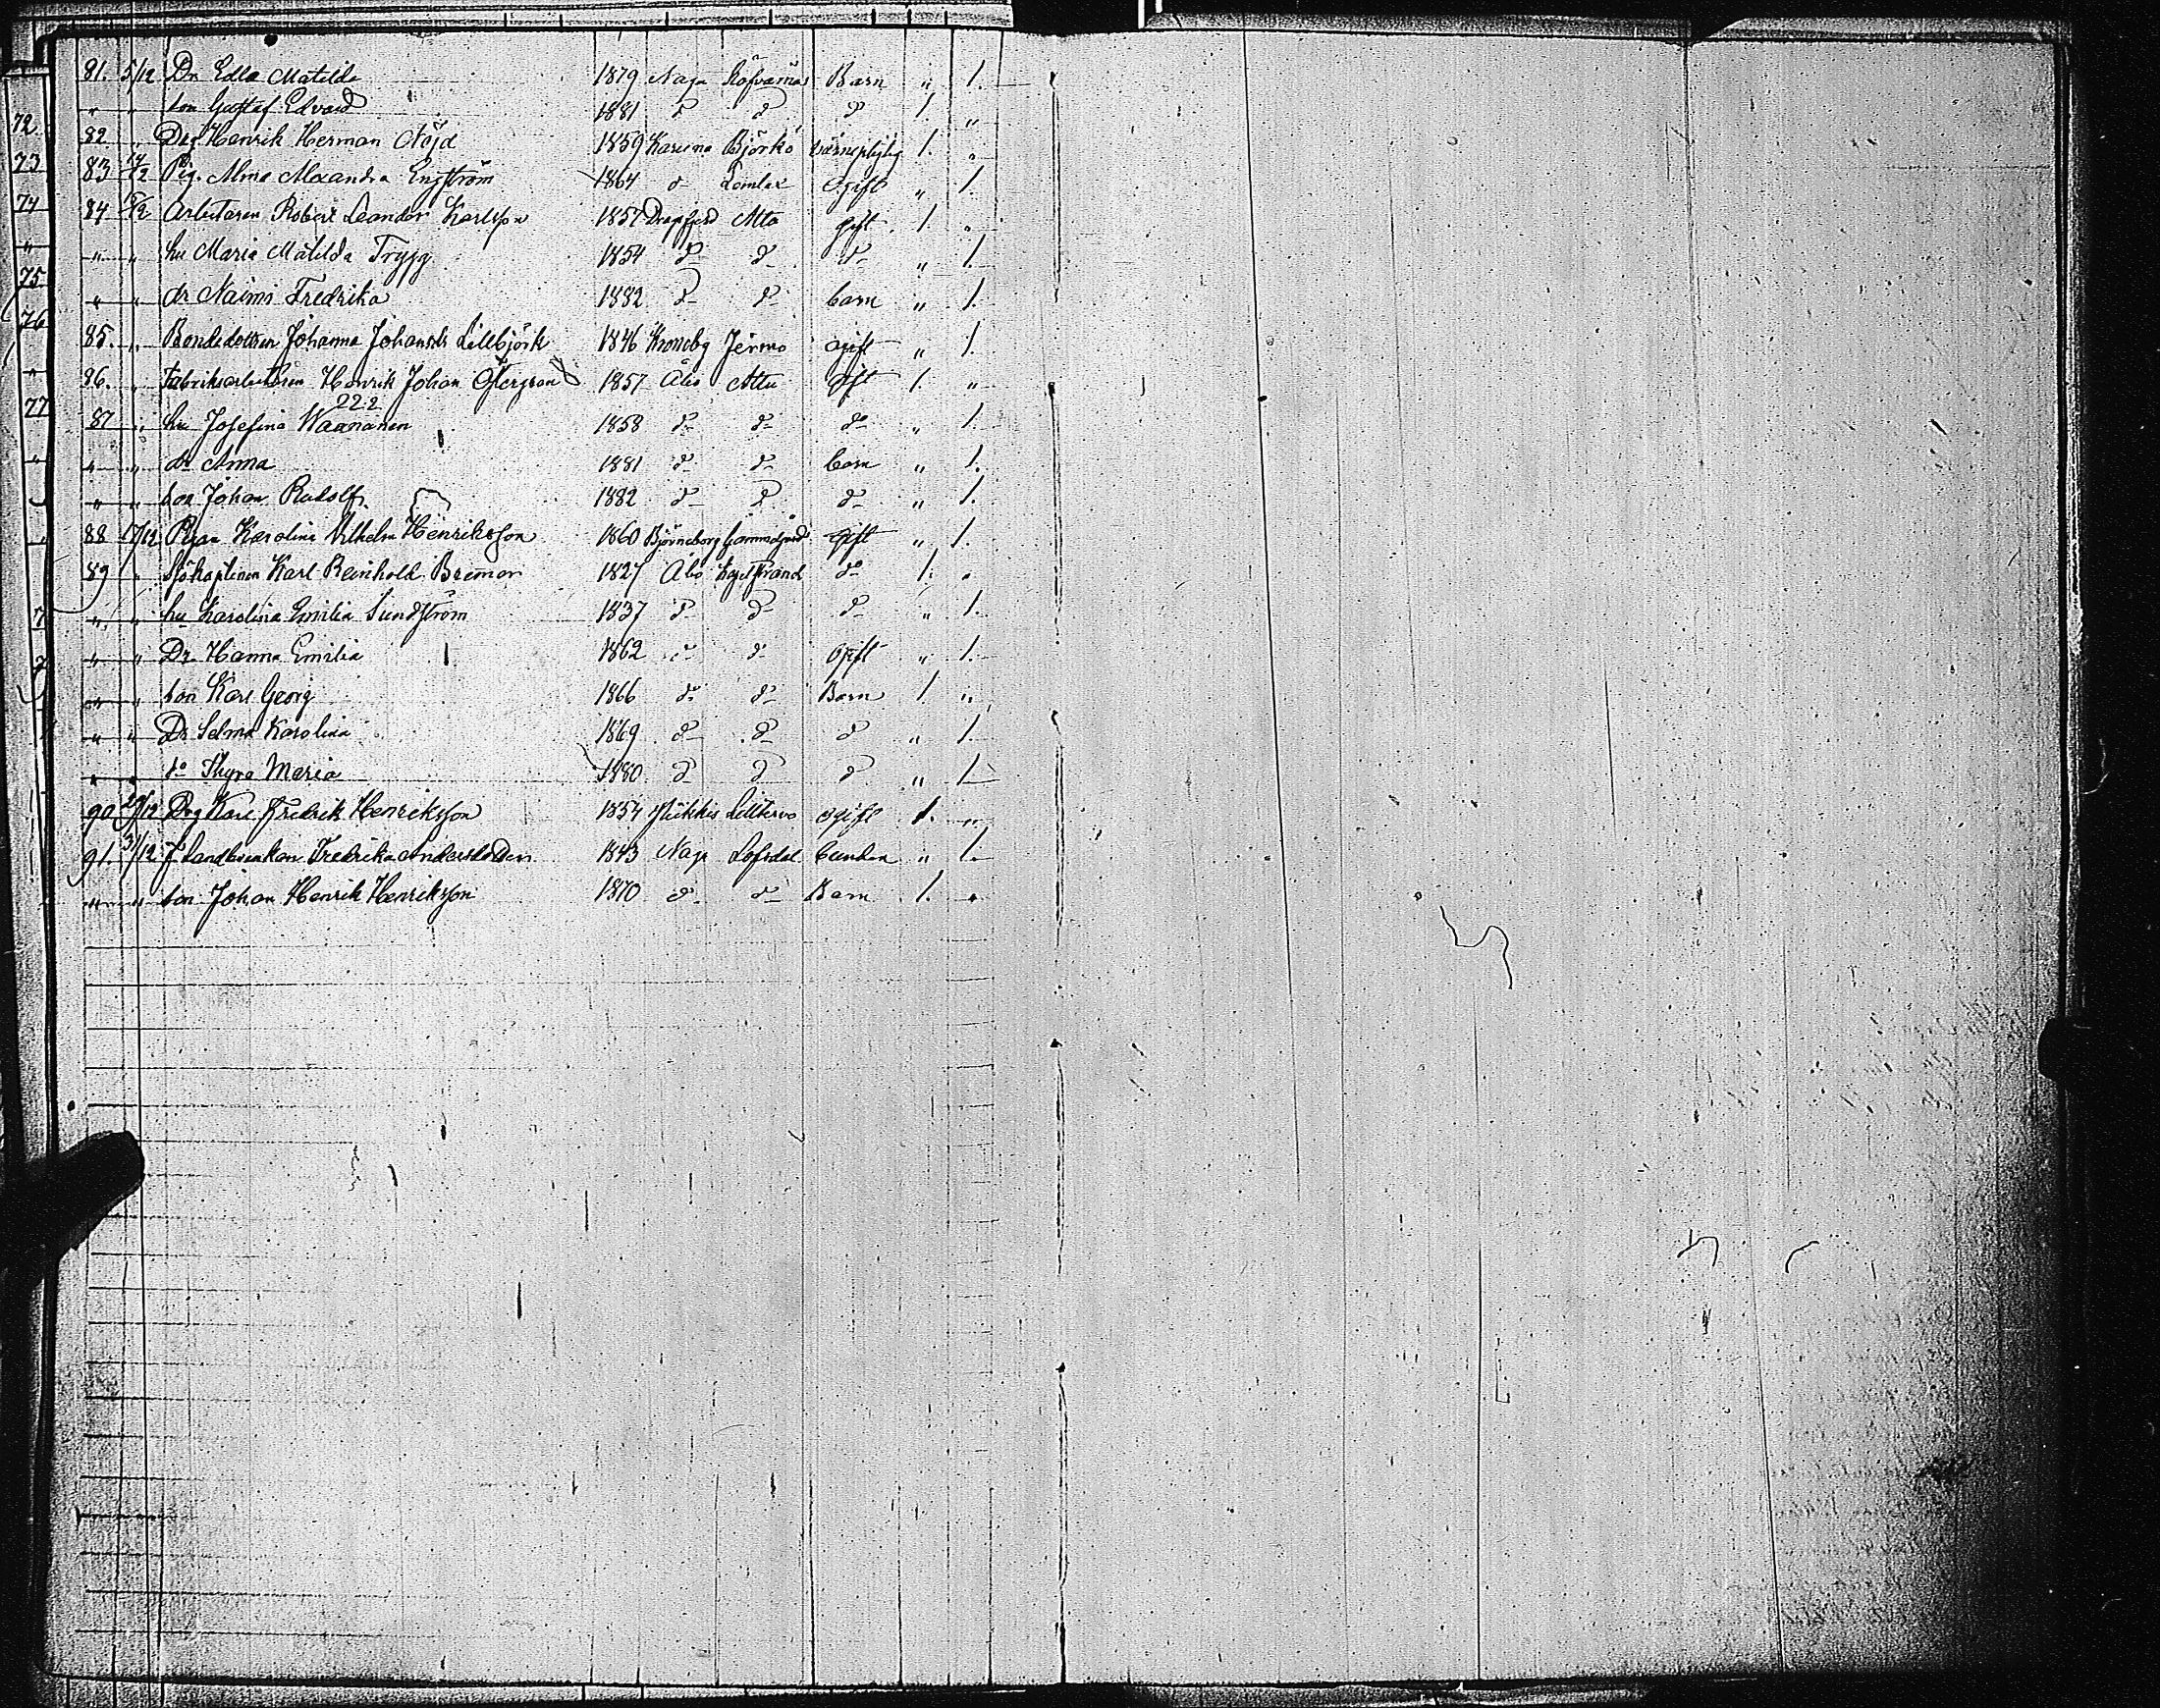 81. 5/12 Dr Edla Matilda 1879 Nagu Barn " 1.
" " son Gustaf Edvard 1881 d d d 1. "
72
82 " Drg Henrik Herman Nöjd 1859 Karuna Björkö Värnepligtig 1. "
73
83 Pig. Alma Alexandra Engström 1864 d Lemlax Ogift " 1.
74
84 Arbetaren Robert Leander Karlsson 1857 Dragsfjerd Attu gift 1. "
" " hu Maria Matilda Trygg 1854 d d d " 1.
75
" " dr Naimi Fredrika 1882 d d barn " 1.
76
85. " Bondedottren Johanna Johansdr Lillbjörk 1846 Kronoby Jermo ogift " 1.
86. " Fabriksarbetaren Henrik Johan 1857 Åbo Attu gift 1. "
77
222
87 " hu Josefina Waananen 1858 d d do " 1.
" " dr Anna 1881 d d barn " 1.
" " son Johan Rudolf 1882 d d d " 1.
88 17/12 Pigan Karolina Vilhelm Henriksson 1860 Björneborg ogift " 1.
89 " Sjökaptenen Karl Reinhold Bremer 1827 Åbo do 1. "
" " hu Karolina Emilia Sundström 1837 d d d " 1.
" " Dr. Hanna Emilia 1862 d d ogift " 1.
" " son Karl Georg 1866 d d Barn 1. "
" " Dr Selma Karolina 1869 d d d " 1.
" " do Thyra Maria 1880 d d d " 1
90 29/12 Drg Karl Fredrik Henriksson 1854 Pikkis ogift 1. "
91. 31/12 Fredrika Andersdotter 1843 Nagu Lofsdal " 1.
" " son Johan Henrik Henriksson 1870 d d Barn 1. "